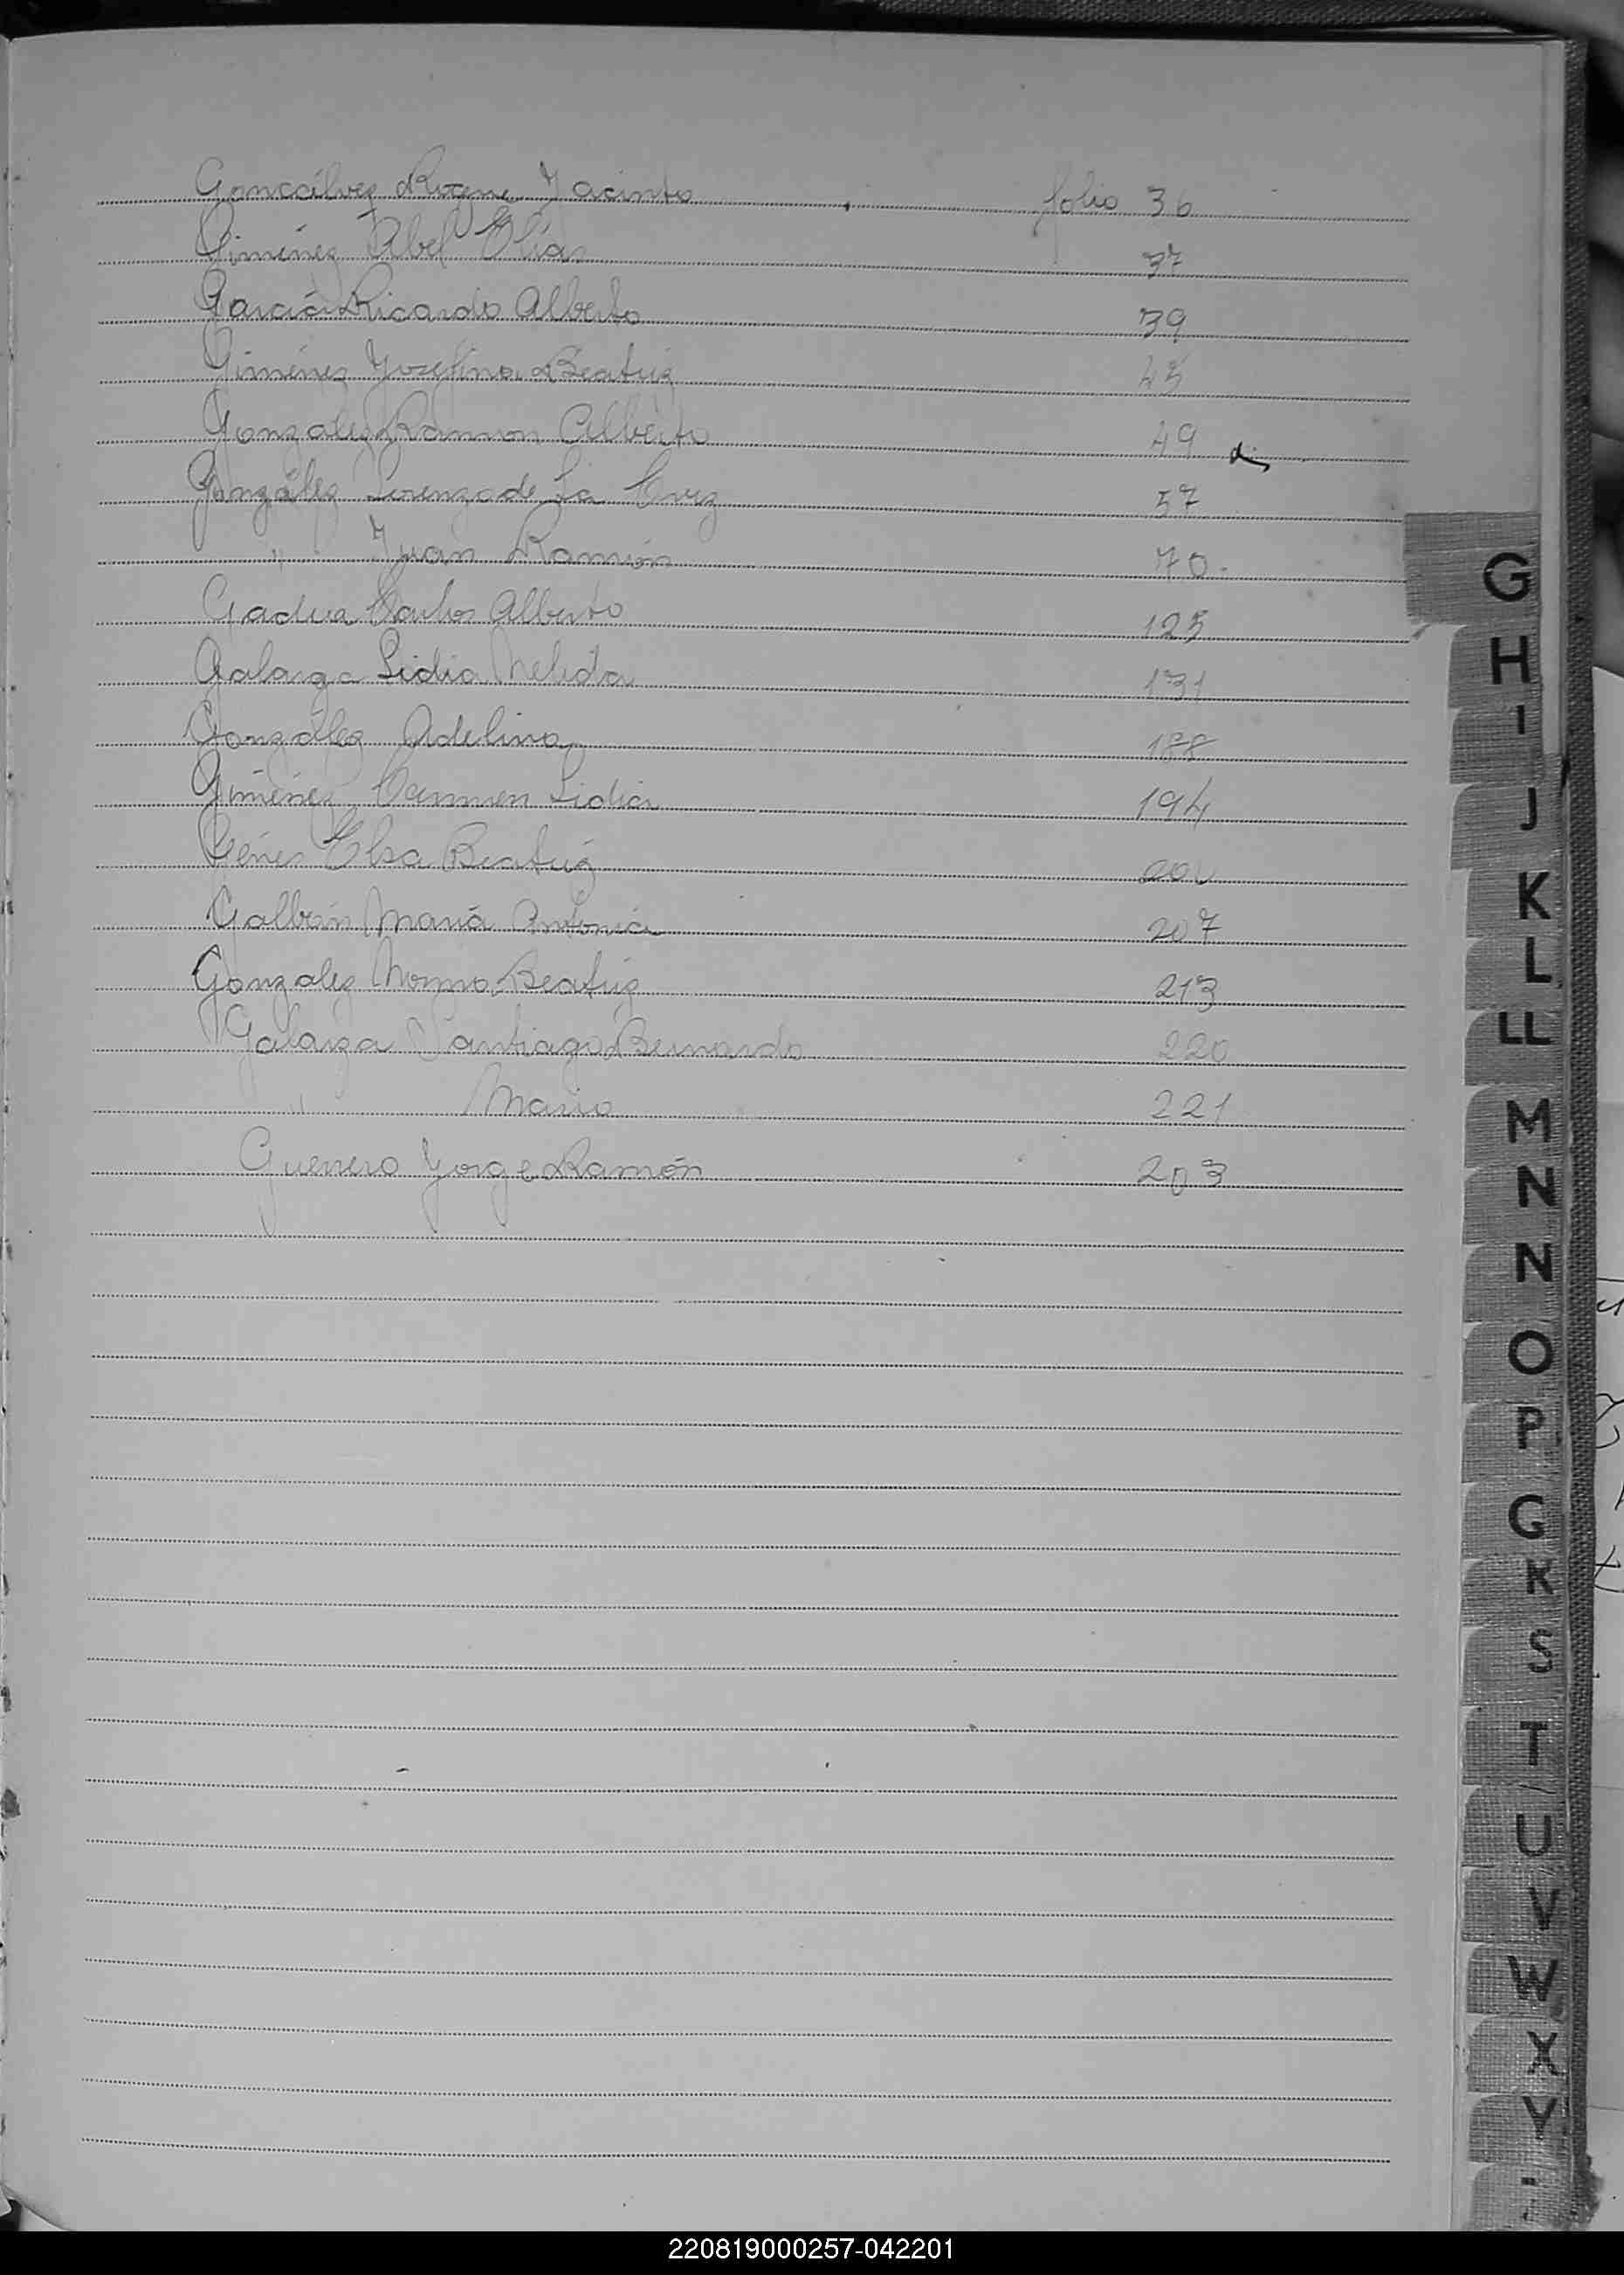 Goncálvez Rogene Jacinto folio 36
Giménez Abel Elías 37
García Ricardo Alberto 39
Giménez Josefina Beatriz 45
Gonzalez Ramon Alberto 49
González Lorenzo de La Cruz 57
" Juan Ramón 70.
Gadua Carlos Alberto 125
Galarza Lidia Nelida 131
González Adelina 188
Giménez Carmen Lidia 194
Génes Elsa Beatriz
Galbán María Antonia 207
Gonzalez Norma Beatriz 213
Galarza Santiago Bernardo 220
" Mario 221
Guerrero Jorge Ramón 203
G
H
I
J
K
L
LL
M
N
N
O
P
G
K
S
T
U
V
W
X
Y
220819000257-042201